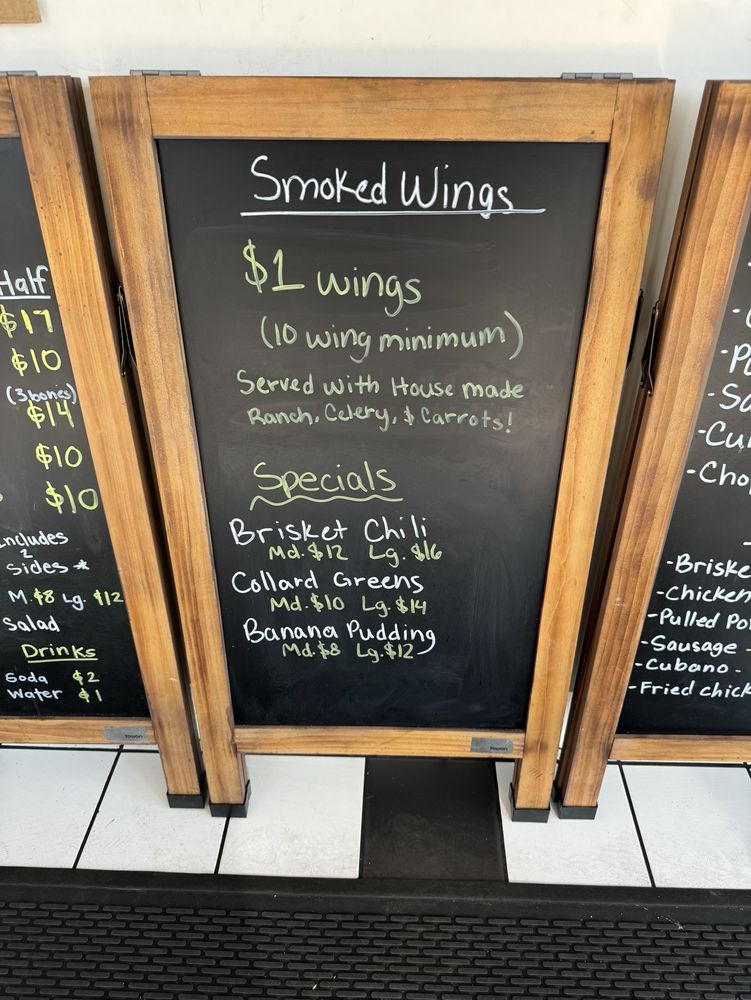 Half
$17
$10
(3 bones)
$14
$10
$10
Includes
2
Sides *
M. $8 Lg. $12
Salad
Drinks
Soda $2
Water $1
Smoked Wings
$1 wings
(10 wing minimum)
Served with House made
Ranch, Celery, & Carrots!
Specials
Brisket Chili
Md. $12 Lg. $16
Collard Greens
Md. $10 Lg. $14
Banana Pudding
Md. $8 Lg. $12
-Chicken
-Sausage -
-Cubano -
-Fried